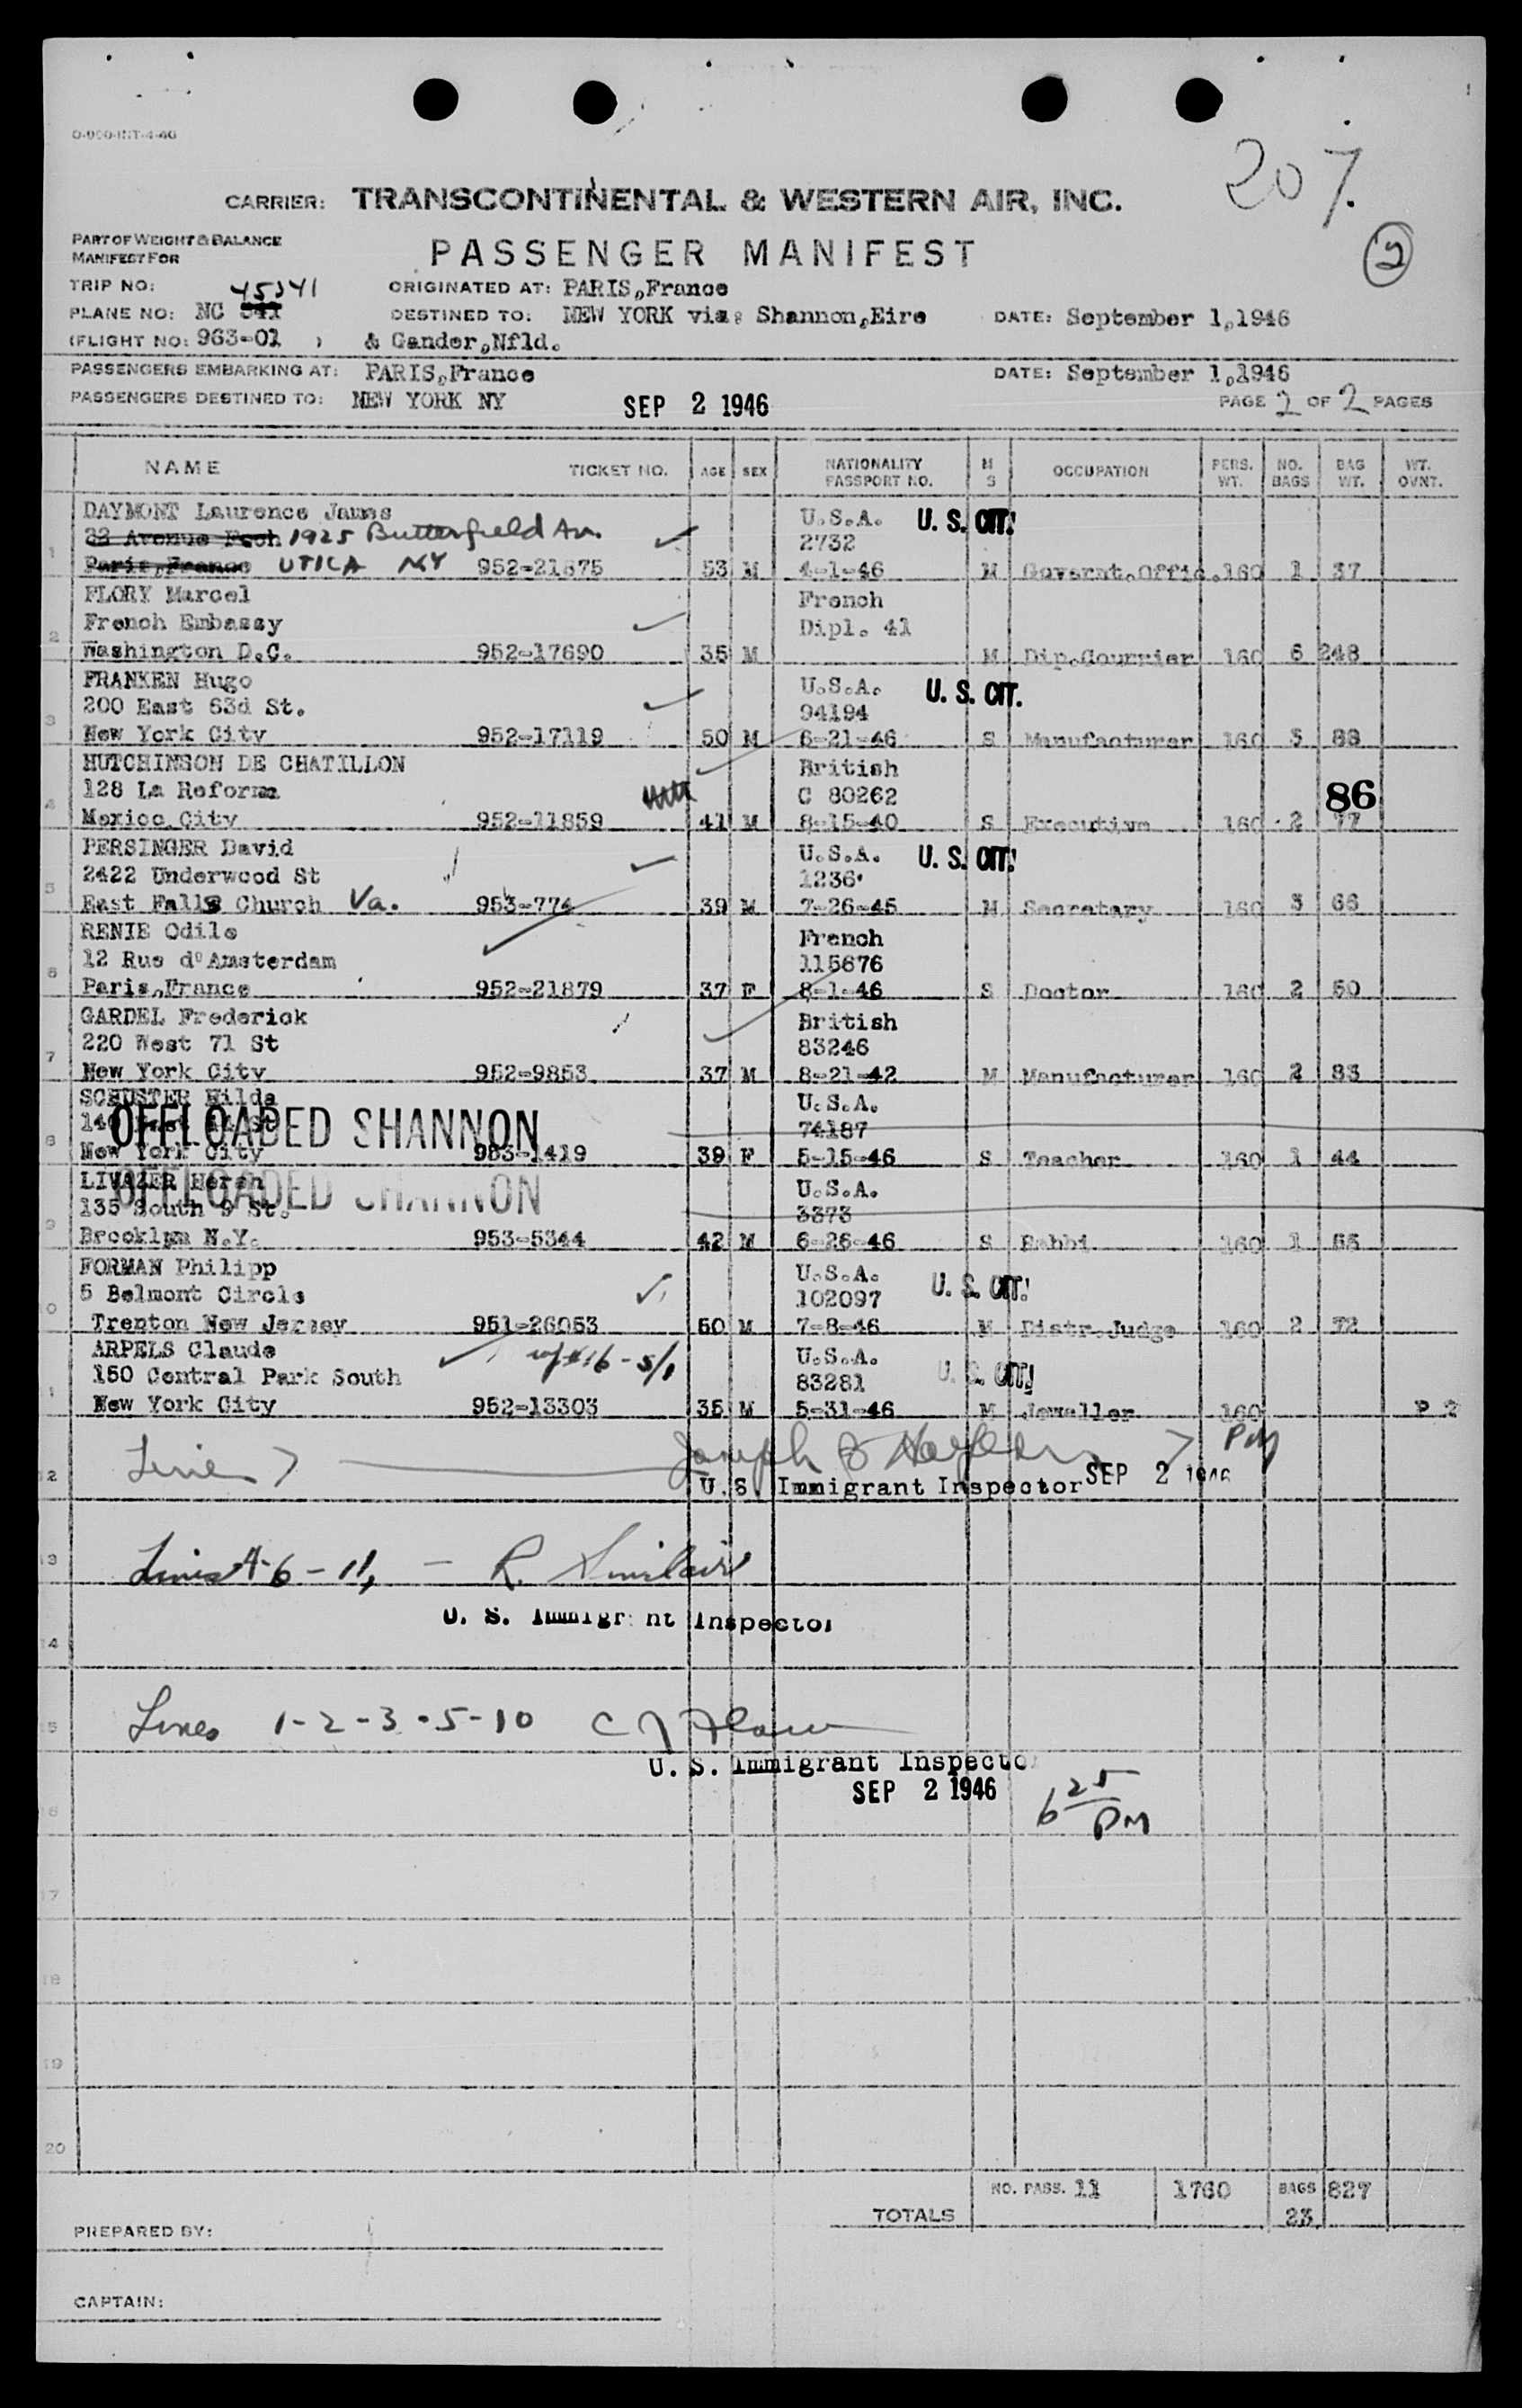 O-900-INT-4-46
207.
CARRIER: TRANSCONTINENTAL & WESTERN AIR, INC.
PART OF WEIGHT & BALANCE
MANIFEST FOR
PASSENGER MANIFEST
2
TRIP NO: 45341 ORIGINATED AT: PARIS,France
PLANE NO: NC 541 DESTINED TO: NEW YORK via: Shannon,Eire DATE: September 1,1946
(FLIGHT NO: 963-01 ) & Gander,Nfld.
PASSENGERS EMBARKING AT: PARIS,France DATE: September 1,1946
PASSENGERS DESTINED TO: NEW YORK NY SEP 2 1946 PAGE 2 OF 2 PAGES
NAME TICKET NO. AGE SEX NATIONALITY PASSPORT NO. M S OCCUPATION PERS. WT. NO. BAGS BAG WT. WT. OVNT.
DAYMONT Laurence James U.S.A. U. S. CIT.
22 Avenue Foch 1925 Butterfield Av. 2732
1 Paris,France UTICA NY 952-21875 53 M 4-1-46 M Govarnt.Offic. 160 1 37
FLORY Marcel French
French Embassy Dipl. 41
2 Washington D.C. 952-17690 35 M M Dip.Courrier 160 6 248
FRANKEN Hugo U.S.A. U. S. CIT.
200 East 63d St. 94194
3 New York City 952-17119 50 M 6-21-46 S Manufacturer 160 3 88
HUTCHINSON DE CHATILLON British
128 La Reforma C 80262 86
4 Mexico City 952-11859 41 M 8-15-40 S Executive 160 2 77
PERSINGER David U.S.A. U. S. CIT.
2422 Underwood St 1236
5 East Falls Church Va. 953-774 39 M 7-26-45 M Secretary 160 3 66
RENIE Odile French
12 Rue d'Amsterdam 115676
6 Paris,France 952-21879 37 F 8-1-46 S Doctor 160 2 50
GARDEL Frederick British
220 West 71 St 83246
7 New York City 952-9853 37 M 8-21-42 M Manufacturer 160 2 83
SCHUSTER Hilda U.S.A.
OFFLOADED SHANNON 74187
8 New York City 953-1419 39 F 5-15-46 S Teacher 160 1 44
Hersh U.S.A.
OFFLOADED SHANNON
135 South 9 St. 3373
9 Brooklyn N.Y. 953-5344 42 M 6-26-46 S Rabbi 160 1 55
FORMAN Philipp U.S.A. U. S. CIT.
5 Belmont Circle 102097
10 Trenton New Jersey 951-26053 50 M 7-8-46 M Distr.Judge 160 2 72
ARPELS Claude U.S.A. U. S. CIT.
150 Central Park South 83281
11 New York City 952-13303 35 M 5-31-46 M Jeweller 160 P 2
Line 7 Joseph 7 PM
12 U.S. Immigrant Inspector SEP 2 1946
13 Lines 4-6-11, - R. Sinclair
U. S. Immigrant Inspector
14
15 Lines 1-2-3-5-10
U. S. Immigrant Inspector
SEP 2 1946 6 25 PM
16
17
18
19
20
NO. PASS. 11 1760 BAGS 827
TOTALS 23
PREPARED BY:
CAPTAIN: